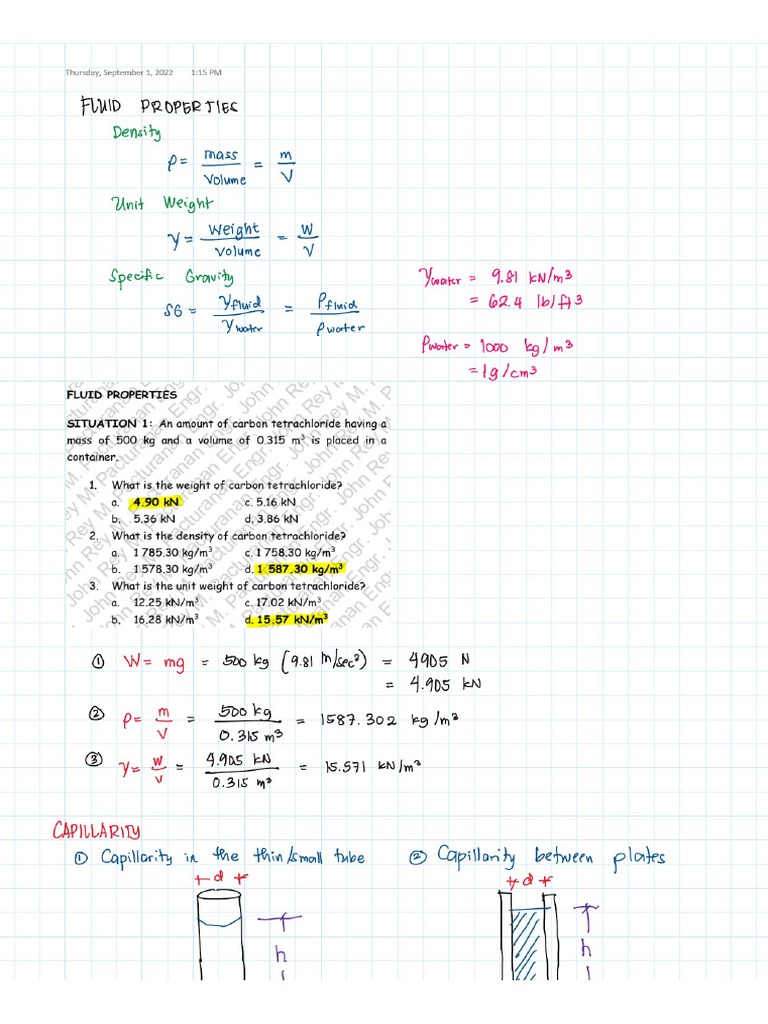 Thursday, September 1, 2022 1:15 PM
FLUID PROPERTIES
Density
ρ = mass / volume = m / V
Unit Weight
γ = weight / volume = W / V
Specific Gravity
SG = γfluid / γwater = ρfluid / ρwater
γwater = 9.81 kN/m³
= 62.4 lb/ft³
ρwater = 1000 kg/m³
= 1g/cm³
FLUID PROPERTIES
SITUATION 1: An amount of carbon tetrachloride having a
mass of 500 kg and a volume of 0.315 m³ is placed in a
container.
1. What is the weight of carbon tetrachloride?
a. 4.90 kN c. 5.16 kN
b. 5.36 kN d, 3.86 kN
2. What is the density of carbon tetrachloride?
a. 1 785.30 kg/m³ c. 1 758.30 kg/m³
b. 1 578.30 kg/m³ d. 1 587.30 kg/m³
3. What is the unit weight of carbon tetrachloride?
a. 12.25 kN/m³ c. 17.02 kN/m³
b. 16.28 kN/m³ d. 15.57 kN/m³
① W = mg = 500 kg (9.81 m/sec²) = 4905 N
= 4.905 kN
② ρ = m / V = 500 kg / 0.315 m³ = 1587.302 kg/m³
③ γ = W / V = 4.905 kN / 0.315 m³ = 15.571 kN/m³
CAPILLARITY
① Capillarity in the thin/small tube
② Capillarity between plates
d
d
h
h